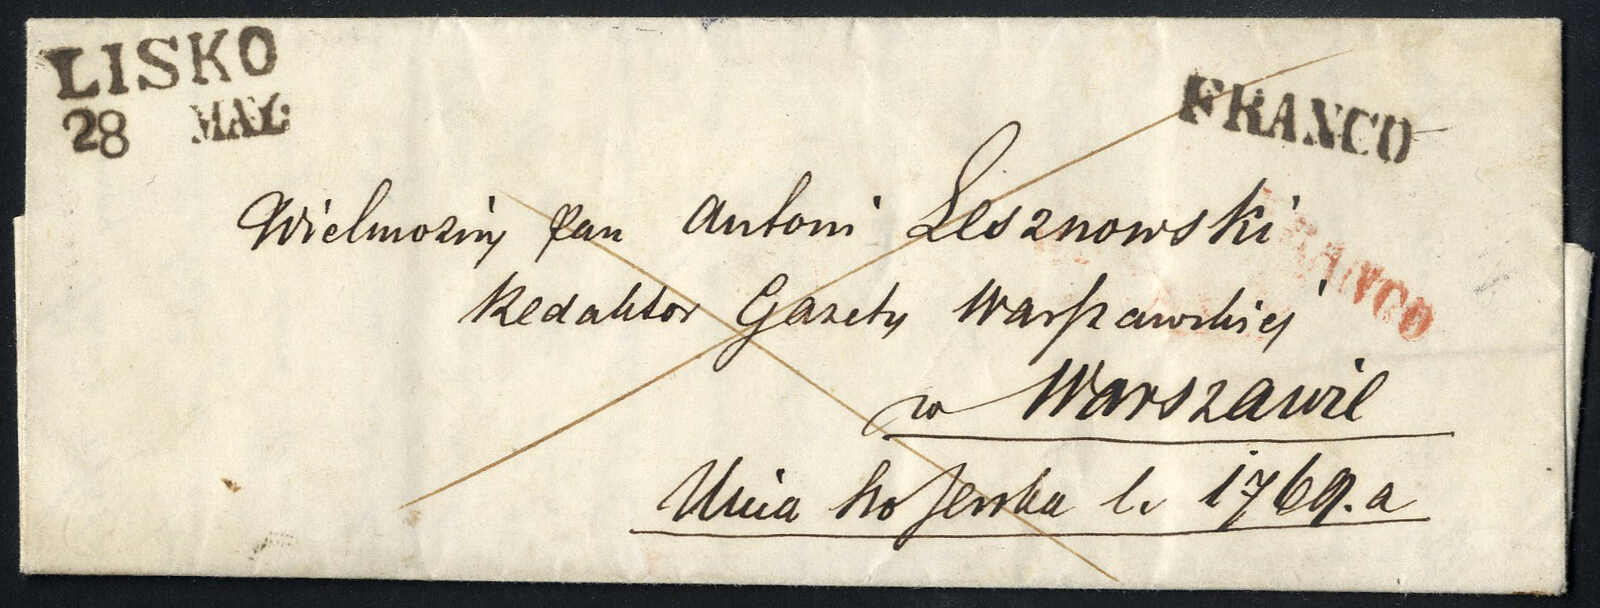 LISKO
28 MAL:
FRANCO
Wielmożny Pan Antoni Lesznowski
FRANCO
Redaktor Gazety Warszawskiej
w Warszawie
Ulica l. 1769.a